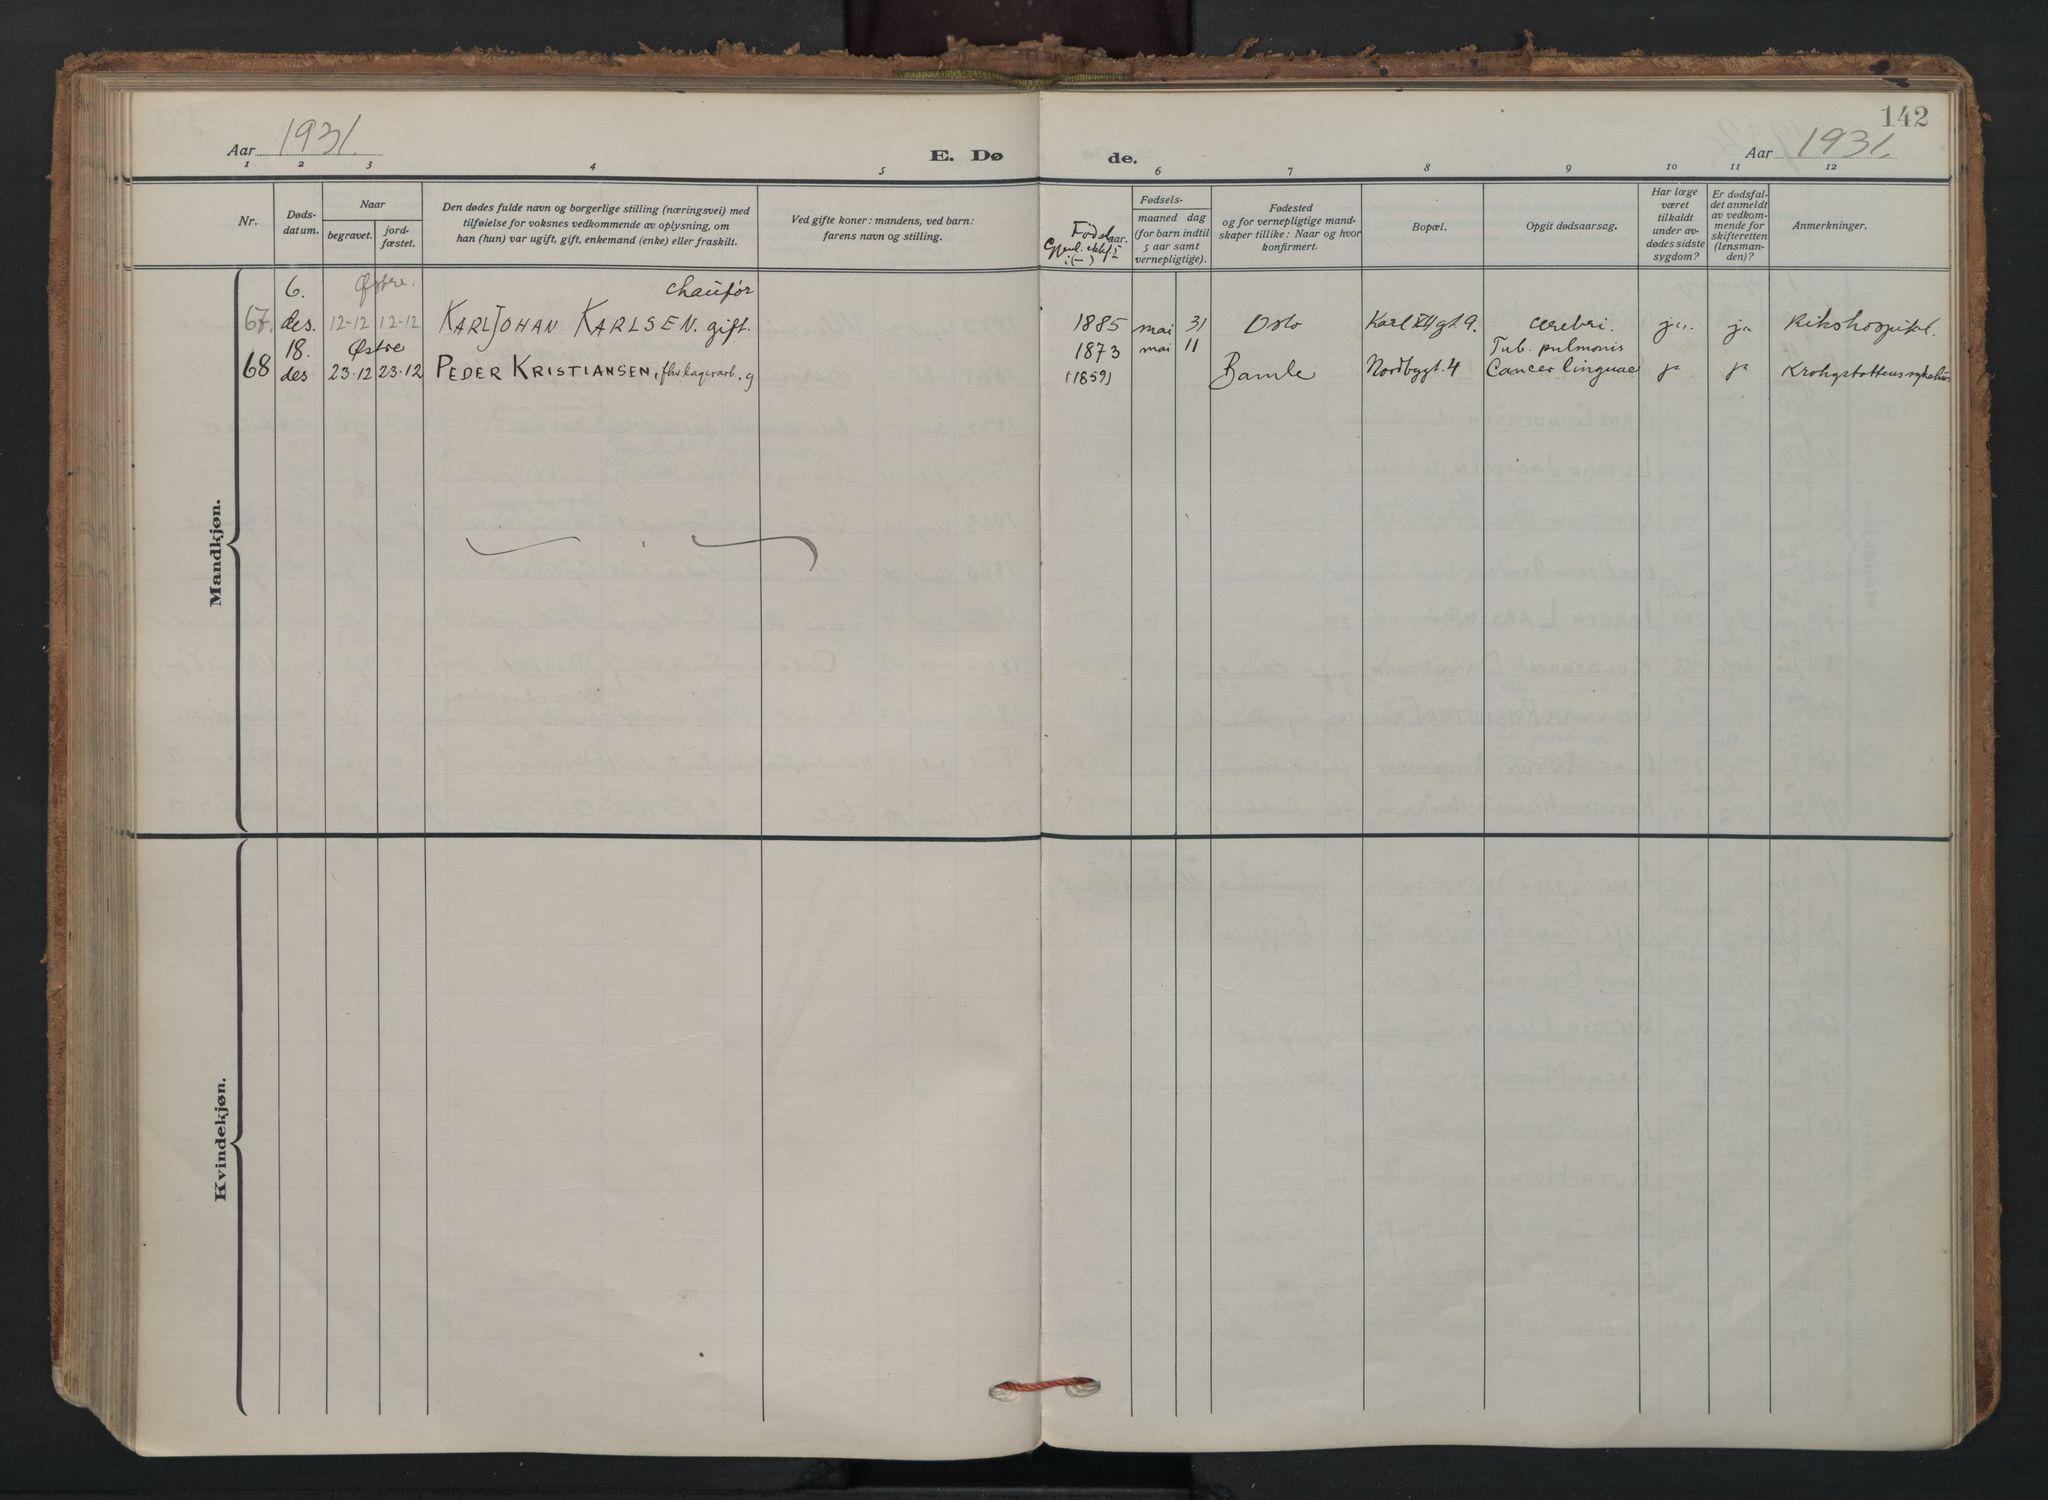 142
Aar 1931.
E. Dø
de.
Aar 1931.
1 2 3 4 5 6 7 8 9 10 11 12
Nr.
Døds-
datum.
Naar
begravet.
jord-
fæstet.
Den dødes fulde navn og borgerlige stilling (næringsvei) med
tilføielse for voksnes vedkommende av oplysning, om
han (hun) var ugift, gift, enkemand (enke) eller fraskilt.
Ved gifte koner: mandens, ved barn:
farens navn og stilling.
Fødselsaar.
i (—)
Fødsels-
maaned dag
(for barn indtil
5 aar samt
vernepligtige).
Fødested
og for vernepligtige mand-
skaper tillike: Naar og hvor
konfirmert.
Bopæl.
Opgit dødsaarsag.
Har læge
været
tilkaldt
under av-
dødes sidste
sygdom?
Er dødsfal-
det anmeldt
av vedkom-
mende for
skifteretten
(lensman-
den)?
Anmerkninger.
Mandkjøn.
6. Østre. chaufør
67. des. 12-12 12-12 KARL JOHAN KARLSEN. gift. 1885 mai 31 Oslo Karl XII gt. 9. cerebri. ja. ja Rikshospital.
18. Østre 1873 mai 11 Tub. pulmonis
68 des 23-12 23-12 PEDER KRISTIANSEN, fhv. lagerarb. g (1859) Bamle Nordbygt. 4 Cancer linguae ja ja Krohgstøttens sykehus
Kvindekjøn.